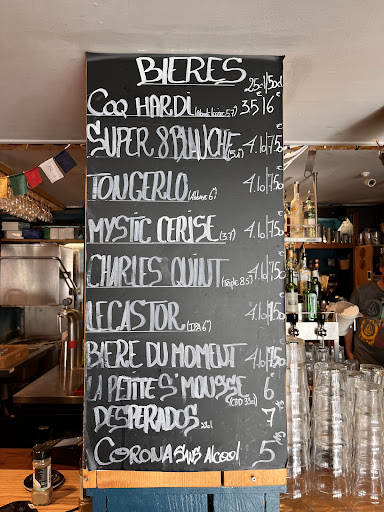 BIERES 25cl/50cl
COQ HARDI (Blonde légère 5.7) 3,5€ / 6€
SUPER 8 BLANCHE (5.1) 4.10 / 7,5€
TONGERLO (Abbaye 6) 4.10 / 7,5€
MYSTIC CERISE (3.7) 4.10 / 7,5€
CHARLES QUINT (Triple 8.5) 4.10 / 7,5€
LE CASTOR (IPA 6) 4.10 / 7,5€
BIERE DU MOMENT 4.10 / 7,5€
LA PETITE S'MOUSSE (CBD 33cl) 6€
DESPERADOS 33cl 7€
CORONA SANS ALCOOL 5€